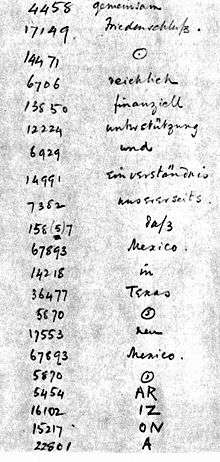 4458 gemeinsam
17149 Friedenschluß.
14471 ⊙
6706 reichlich
13850 finanziell
12224 unterstützung
6929 und
14991 einverständnis
7382 unsererseits.
158(5)7 daß
67893 Mexico.
14218 in
36477 Texas
5870 ⊙
17553 neu
67693 Mexico.
5870 ⊙
5454 AR
16102 IZ
15217 ON
22801 A